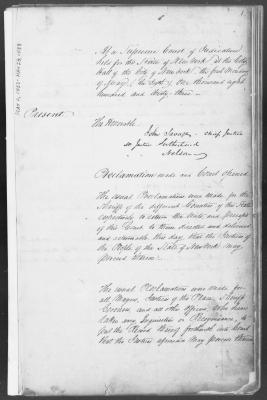 1.
At a Supreme Court of Judicature
held for the State of New York at the City
Hall of the City of New York the first Monday
of May, the sixth, One thousand eight
hundred and thirty three
Present
The Honorable
John Savage, Chief Justice
Mr Justice Sutherland
Nelson
Proclamation made and Court opened
The usual Proclamation was made for the
Sheriffs of the different Counties of the State
respectively to return the Writs and precepts
of this Court to them directed and delivered
and returnable this day, that the Justices of
the People of the State of New York may
proceed thereon
The usual Proclamation was made for
all Mayors, Justices of the Peace, Sheriffs
Coroners and all other Officers, who have
taken any Inquisition or Recognizance, to
put the Record thereof forthwith in Court
that the Justices aforesaid may proceed thereon